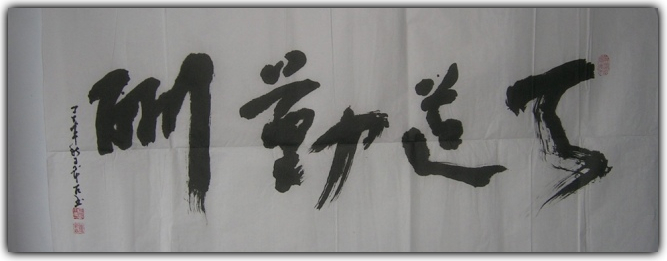 天道勤酬
丁亥年